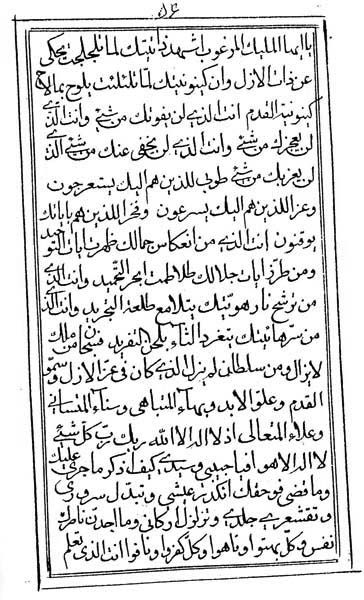 يا ايها المليك المرغوب اشهد بذاتيتك لما تلجلجت تحكى
عن ذات الازل وان كينونيتك لما تلئلئت يلوح بمالاح
كينونية القدم انت الذى لن يفوتك من شئ وانت الذى
لن يعجزك من شئ وانت الذى لن يخفى عنك من شئ الذى
لن يعزبك من شئ طوبى للذين هم اليك يستعرجون
وعز الذين هم اليك يسرعون وفخر الذين هم باياتك
يوقنون انت الذى من انعكاس جمالك ظهرت ايات التوحيد
ومن طرز ايات جلالك طلاطمت ابحر التحميد وانت الذى
من ترشح نار هويتك بتلامع طلعة التجريد وانت الذى
من سر هائيتك يتغرد الثناء بلحن التفريد فسبحان من ملك
لايزال ومن سلطان لم يزل الذى كان فى عز الازل وسمو
القدم وعلو الابد وبهاء المتباهى وسناء المتسانى
وعلاء المتعالى اذ لا اله الا الله ربك رب كل شئ
لا اله الا هو فيا حبيبى وسيدى كيف اذكر ما جرى عليك
وما قضى فوحقك انكدر عيشى وتبدل سرورى
وتقشعر جلدى وتزلزل اركانى وما احدن ناظره
نفس وكل بهتوا وتاهوا وكل كفروا ونافوا انت الذى تعلم